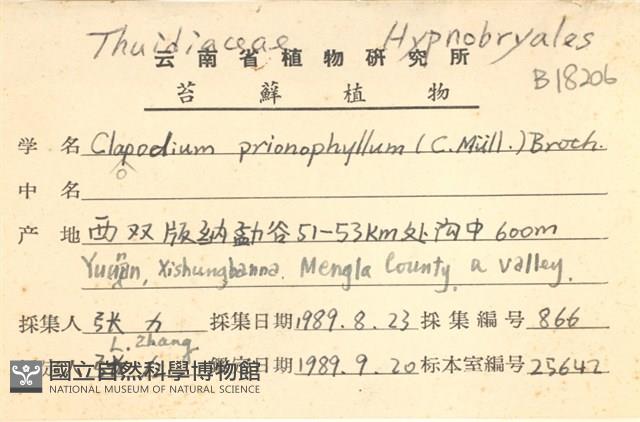 Thuidiaceae Hypnobryales
云南省植物研究所
B18206
苔蘚植物
学名 Clapodium prionophyllum (C. Müll.) Broth.
o
中名
产地 西双版纳勐谷51-53Km处沟中600m
Yunnan, Xishungbanna, Mengla County, a valley.
採集人 张力 採集日期 1989.8.23 採集編号 866
L. Zhang
人 张力 鉴定日期 1989.9.20 标本室編号 25642
國立自然科學博物館
NATIONAL MUSEUM OF NATURAL SCIENCE